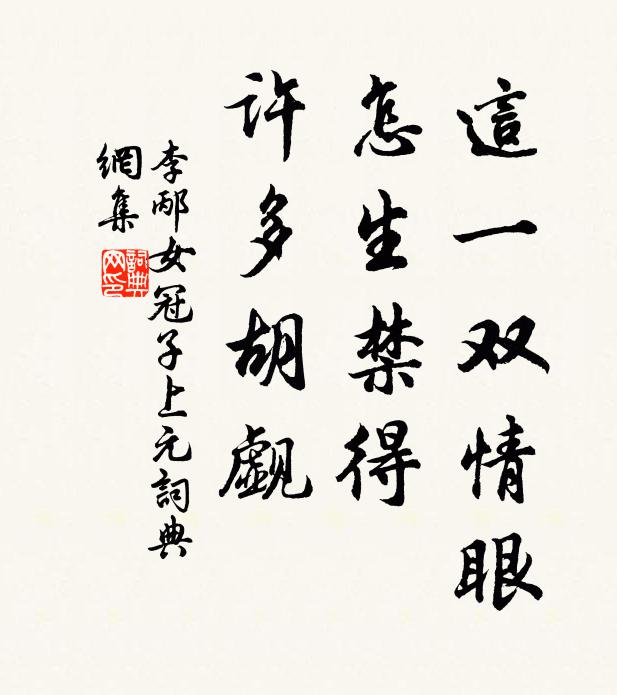 這一双情眼
怎生禁得
許多胡覷
李邴女冠子上元詞典
網集
詞典
网印